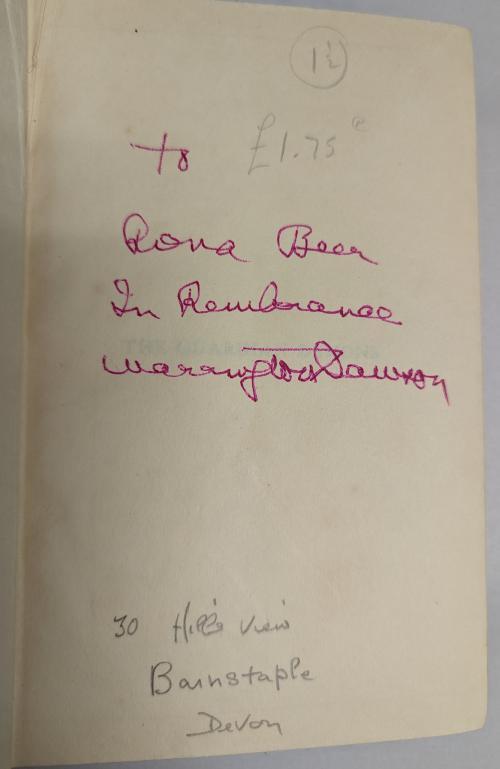 1½
to £1.75
Rona Beer
In Remembrance
Warrington Dawson
30 Hills View
Barnstaple
Devon